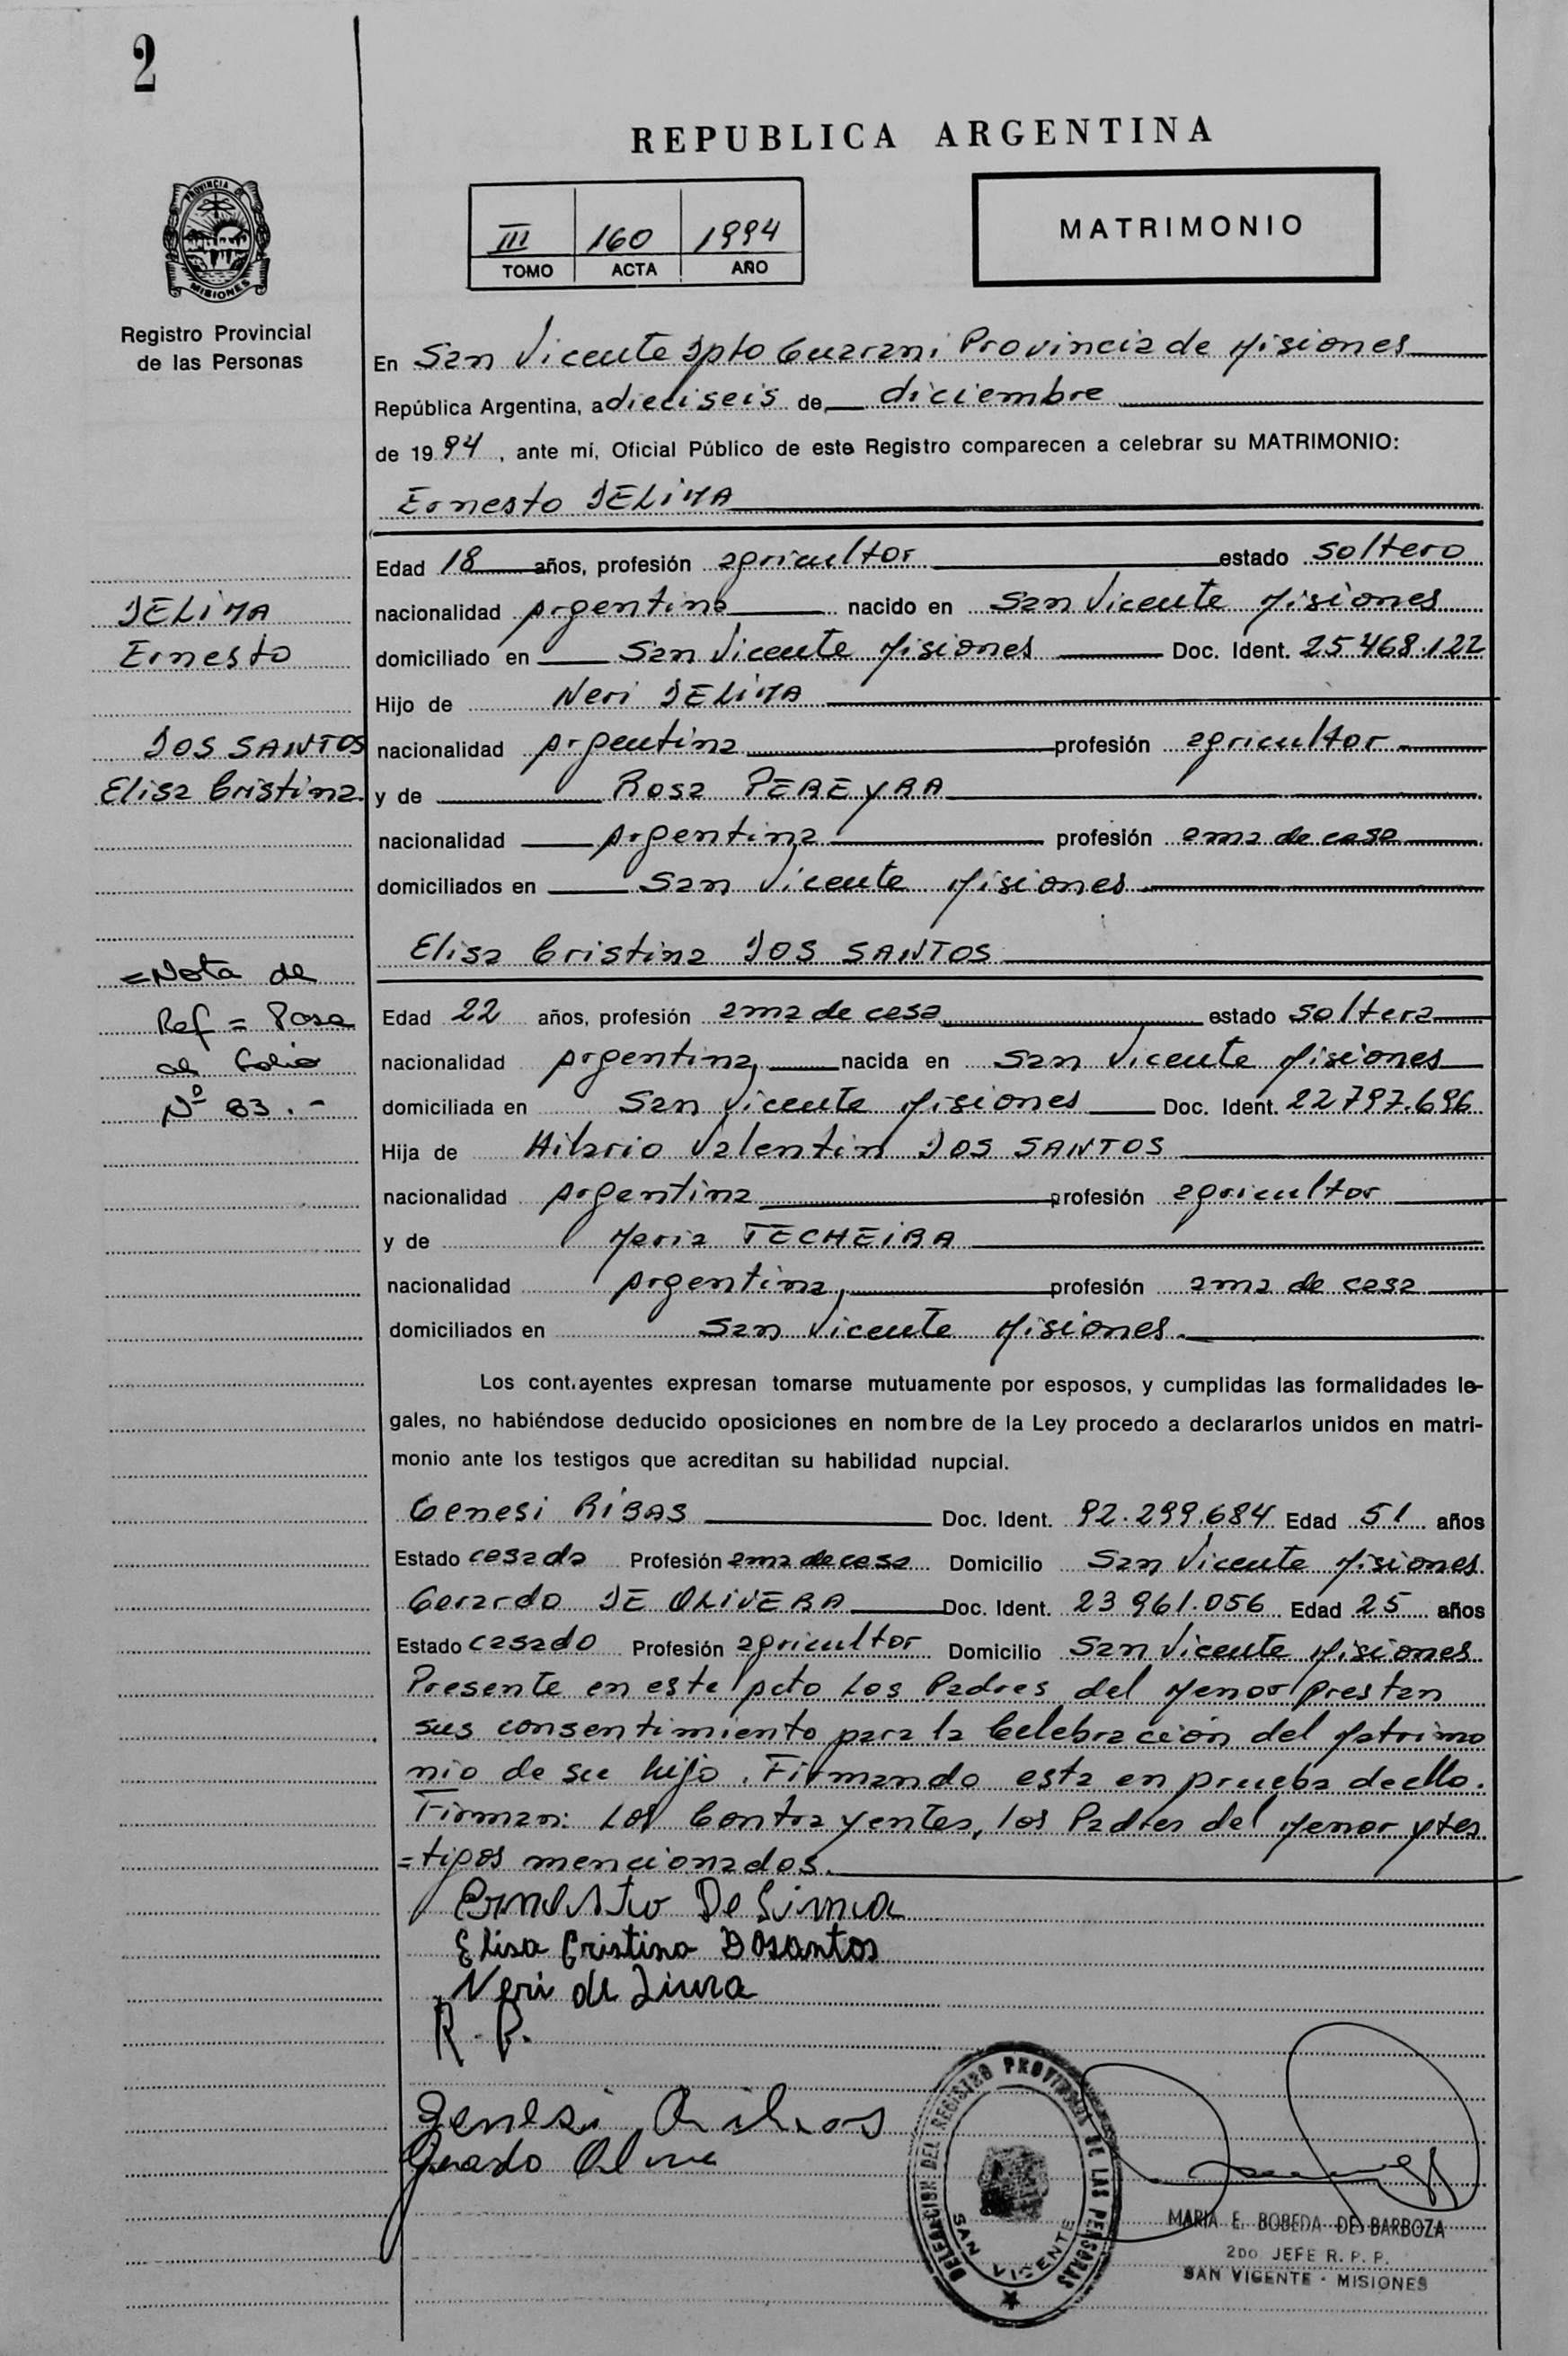 2
REPUBLICA ARGENTINA
PROVINCIA DE
MISIONES
Registro Provincial
de las Personas
III 160 1994
TOMO ACTA AÑO
MATRIMONIO
En San Vicente Dpto Guarani Provincia de Misiones
República Argentina, a dieciseis de diciembre
de 1994, ante mí, Oficial Público de este Registro comparecen a celebrar su MATRIMONIO:
Ernesto DELIMA
Edad 18 años, profesión agricultor estado soltero
nacionalidad Argentina nacido en San Vicente Misiones
domiciliado en San Vicente Misiones Doc. Ident. 25.468.122
Hijo de Neri DELIMA
nacionalidad Argentina profesión agricultor
y de Rosa PEREYRA
nacionalidad Argentina profesión ama de casa
domiciliados en San Vicente Misiones
DELIMA
Ernesto
DOS SANTOS
Elisa Cristina
Elisa Cristina DOS SANTOS
Edad 22 años, profesión ama de casa estado soltera
nacionalidad Argentina, nacida en San Vicente Misiones
domiciliada en San Vicente Misiones Doc. Ident. 22797.696
Hija de Hilario Valentin DOS SANTOS
nacionalidad Argentina profesión agricultor
y de Maria TECHEIRA
nacionalidad Argentina, profesión ama de casa
domiciliados en San Vicente Misiones.
=Nota de
Ref = Pasa
al Folio
Nº 83.-
Los cont.ayentes expresan tomarse mutuamente por esposos, y cumplidas las formalidades le-
gales, no habiéndose deducido oposiciones en nombre de la Ley procedo a declararlos unidos en matri-
monio ante los testigos que acreditan su habilidad nupcial.
Genesi RIBAS Doc. Ident. 92.299.684 Edad 51 años
Estado casada Profesión ama de casa Domicilio San Vicente Misiones
Gerardo DE OLIVERA Doc. Ident. 23961.056 Edad 25 años
Estado casado Profesión agricultor Domicilio San Vicente Misiones
Presente en este Acto Los Padres del Menor prestan
sus consentimiento para la Celebracion del Matrimo
nio de su hijo. Firmando esta en prueba de ello.
Firman: Los Contrayentes, los Padres del Menor y tes
=tigos mencionados.
Ernesto De Lima
Elisa Cristina Dosantos
Neri de Lima
R. P.
Genesi
DELEGACION DEL REGISTRO PROVINCIAL DE LAS PERSONAS
SAN VICENTE
MARIA E. BOBEDA DE BARBOZA
2DO. JEFE R. P. P.
SAN VICENTE - MISIONES